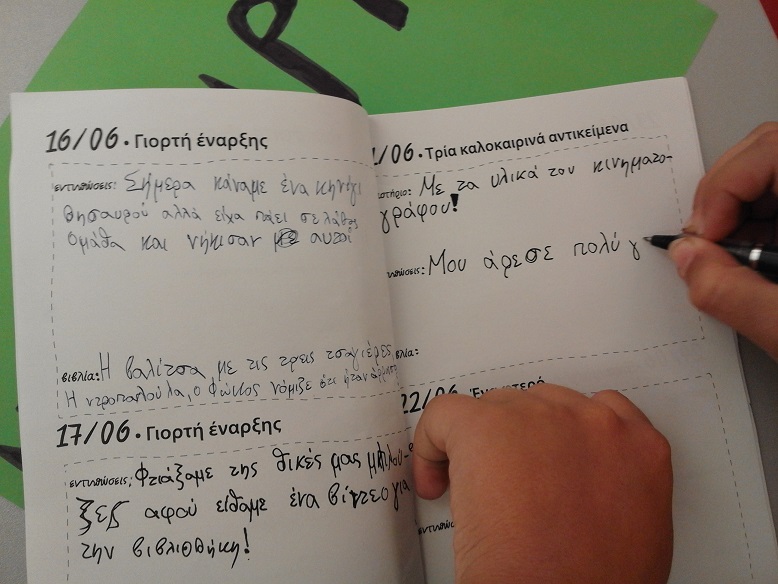 16/06 • Γιορτή έναρξης
εντυπώσεις: Σήμερα κάναμε ένα κηνύγι
θησαυρού αλλά είχα πάει σε λάθος
ομάθα και νήκισαν αυτοί
βιβλία: Η βαλίτσα με τις τρεις τσαγιέρες,
Η ντροπαλούλα, ο Φώκος νόμιζε ότι ήταν
17/06 • Γιορτή έναρξης
εντυπώσεις: Φτιάξαμε της θικές μας μπλού-
ζες αφού είθαμε ένα βίντεο για
την βιβλιοθήκη!
1/06 • Τρία καλοκαιρινά αντικείμενα
στήριο: Με τα υλικά του κινηματο-
γράφου!
πώσεις: Μου άρεσε πολύ γ
βλία:
22/06